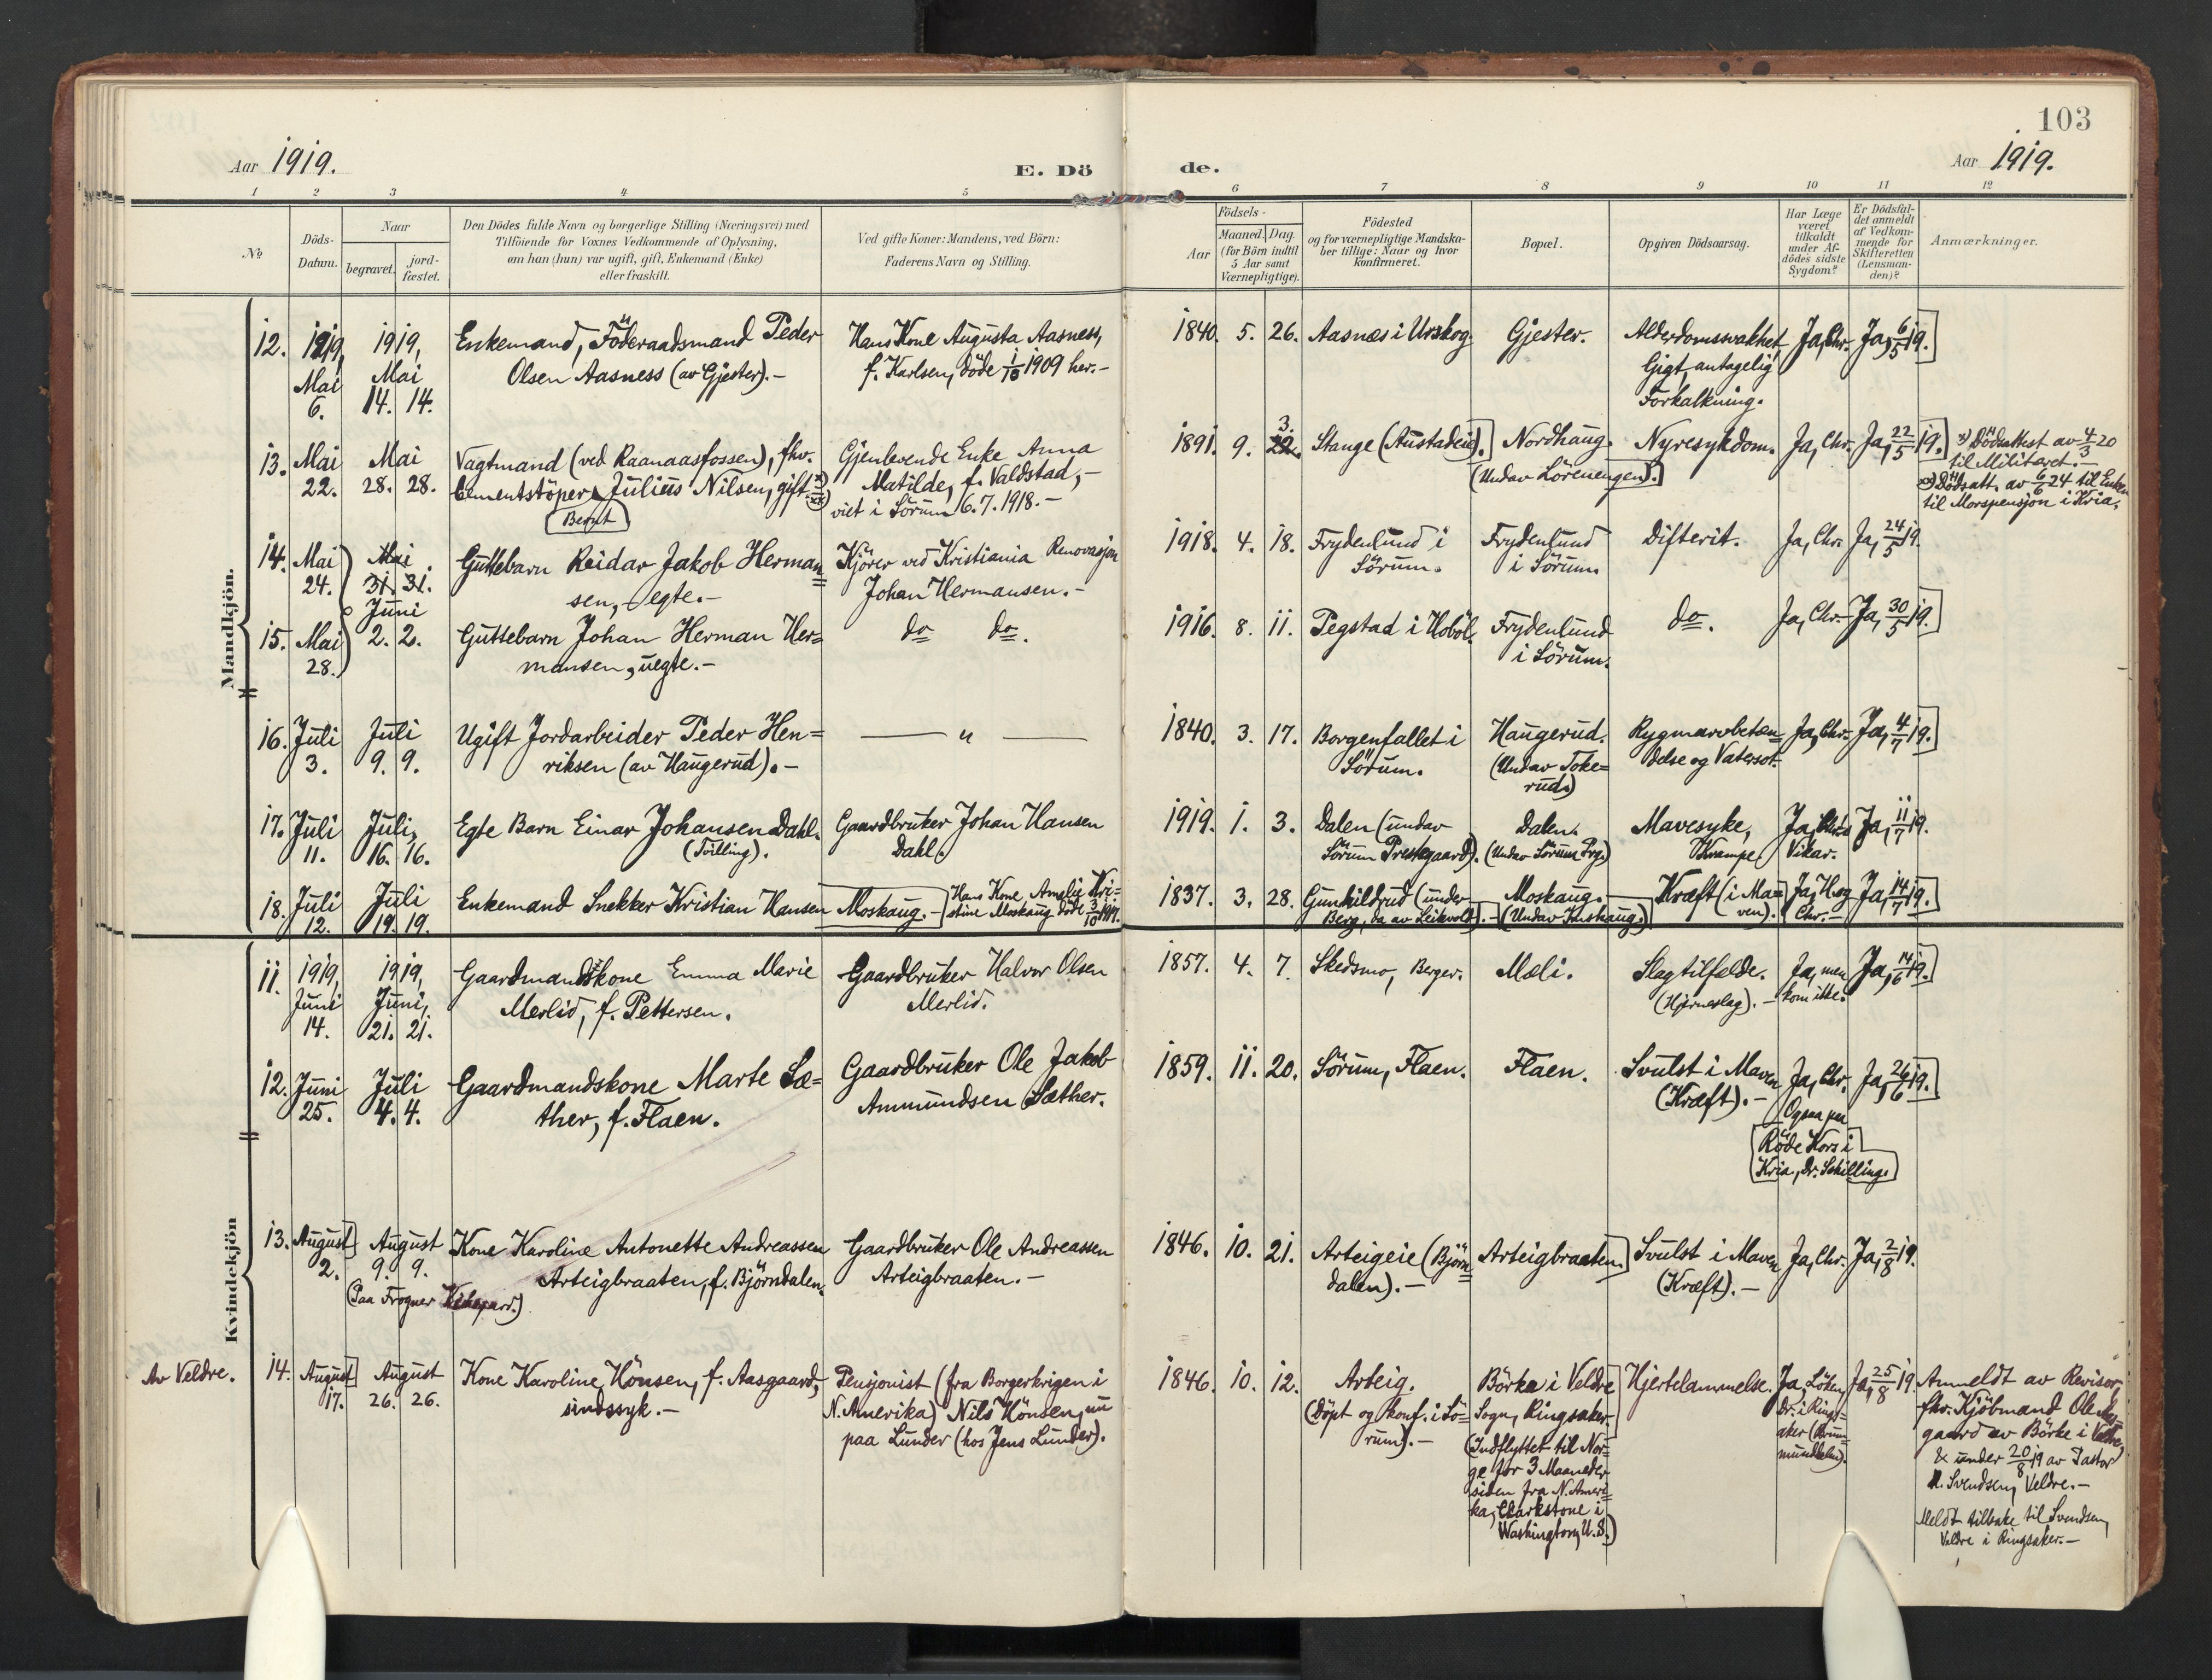 103
Aar 1919.
E. Dö de.
Aar 1919.
1 2 3 4 5 6 7 8 9 10 11 12
No
Döds-
Datum.
Naar
begravet.
jord-
fæstet.
Den Dödes fulde Navn og borgerlige Stilling (Næringsvei) med
Tilföiende for Voxnes Vedkommende af Oplysning,
om han (hun) var ugift, gift, Enkemand (Enke)
eller fraskilt.
Ved gifte Koner: Mandens, ved Börn:
Faderens Navn og Stilling.
Födsels-
Aar
Maaned. Dag.
(for Börn indtil
5 Aar samt
Værnepligtige).
Födested
og for værnepligtige Mandska-
ber tillige: Naar og hvor
konfirmeret.
Bopæl.
Opgiven Dödsaarsag.
Har Læge
været
tilkaldt
under Af-
dödes sidste
Sygdom?
Er Dödsfal-
det anmeldt
af Vedkom-
mende for
Skifteretten
(Lensman-
den)?
Anmærkninger.
Mandkjön.
12.
1919,
Mai
6.
1919,
Mai
14. 14.
Enkemand, Föderaadsmand Peder
Olsen Aasness (av Gjester).-
Hans Kone Augusta Aasness,
f. Karlsen, döde 1/10 1909 her.-
1840. 5. 26.
Aasnæs i Urskog.
Gjester.
Alderdomssvakhet,
Gigt, antagelig
Forkalkning.
Ja, Chr.
Ja, 6/5 19.
13.
Mai
22.
Mai
28. 28.
Vagtmand (ved Raanaasfossen), fhv.
Cementstöper Julius Nilsen, gift x) xx)
Bernt
Gjenlevende Enke Anna
Matilde, f. Valdstad,-
viet i Sörum 6.7.1918.-
1891. 9. 22.
3.
Stange (Austadeie).
Nordhaug.
(Undav Lörenengen).
Nyresykdom.
Ja, Chr.
Ja, 22/5 19.
x) Dödsattest av 4/3 20
til Militæret.-
xx) Dödsatt. av 6/6 24 til Enken
til Morspensjon i Kria.
14.
Mai
24.
Mai
31. 31.
Juni
2. 2.
Guttebarn Reidar Jakob Herman=
sen, egte.-
Kjörer ved Kristiania Renovasjon
Johan Hermansen.-
1918. 4. 18.
Frydenlund i
Sörum.
Frydenlund
i Sörum.
Difterit.
Ja, Chr.
Ja, 24/5 19.
15.
Mai
28.
Guttebarn Johan Herman Her=
mansen, uegte.-
do do.
1916. 8. 11.
Pegstad i Hoböl.
Frydenlund
i Sörum.
do.
Ja, Chr.
Ja, 30/5 19.
16.
Juli
3.
Juli
9. 9.
Ugift Jordarbeider Peder Hen=
riksen (av Haugerud).-
— " —
1840. 3. 17.
Borgenfallet i
Sörum.
Haugerud.
(Undav Toke=
rud.)
Rygmarvbetæn=
delse og Vatersot.
Ja, Chr.
Ja, 4/7 19.
17.
Juli
11.
Juli,
16. 16.
Egte Barn Einar Johansen Dahl.
(Tvilling).
Gaardbruker Johan Hansen
Dahl.
1919. 1. 3.
Dalen (undav
Sörum Prestegaard).
Dalen.
(Undav Sörum Prg.)
Mavesyke,
Krampe.
Ja, Chr.s
Vikar.
Ja, 11/7 19.
18.
Juli
12.
Juli
19. 19.
Enkemand Snekker Kristian Hansen Moskaug.-
Hans Kone Amalie Kri=
stine Moskaug döde
1837. 3. 28.
Gunhildrud (under
Berg, da av Leikvold).-
Moskaug.-
(Undav Imshaug.)
Kræft (i Ma=
ven).
Ja, H. og
Chr.-
Ja, 14/7 19.
Kvindekjön
11.
1919,
Juni
14.
1919,
Juni,
21. 21.
Gaardmandskone Emma Marie
Merlid, f. Pettersen.
Gaardbruker Halvor Olsen
Merlid.
1857. 4. 7.
Skedsmo, Berger.
Mæli.
Slagtilfælde.
(Hjerneslag).-
Ja, men
kom ikke.
Ja, 14/6 19.
12.
Juni
25.
Juli
4. 4.
Gaardmandskone Marte Sæ=
ther, f. Flaen.
Gaardbruker Ole Jakob
Ammundsen Sæther.
1859. 11. 20.
Sörum, Flaen.
Flaen.
Svulst i Maven
(Kræft).-
Ja, Chr.
Ogsaa paa
Röde Kors i
Kria., Dr. Schilling.
Ja, 26/6 19.
13.
August
2.
August
9. 9.
(Paa Frogner Kirkegaard.)
Kone Karoline Antonette Andreassen
Arteigbraaten, f. Björndalen.
Gaardbruker Ole Andreassen
Arteigbraaten.-
1846. 10. 21.
Arteigeie (Björn=
dalen).-
Arteigbraaten.
Svulst i Maven
(Kræft).-
Ja, Chr.
Ja, 2/8 19.
Av Veldre.
14.
August
17.
August
26. 26.
Kone Karoline Hönsen, f. Aasgaard,
sindssyk.-
Pensjonist (fra Borgerkrigen i
N. Amerika) Nils Hönsen, nu
paa Lunder (hos Jens Lunder).
1846. 10. 12.
Arteig.
(döpt og konf. i Sö=
rum).-
Börke i Veldre
Sogn, Ringsaker.
(Indflyttet til Nor=
ge for 3 Maaneder
siden fra N. Ameri=
ka, Clarkstone i
Washington, U.S.)
Hjertelammelse.
Ja, Löken,
Dr. i Rings=
aker (Brum=
munddalen).
Ja, 25/8 19.
Anmeldt av Revisor,
fhv. Kjöbmand Ole Aas=
gaard av Börke i Veldre,
& under 20/8 19 av Pastor
N. Svendsen, Veldre.-
Meldt tilbake til Svendsen,
Veldre i Ringsaker.-